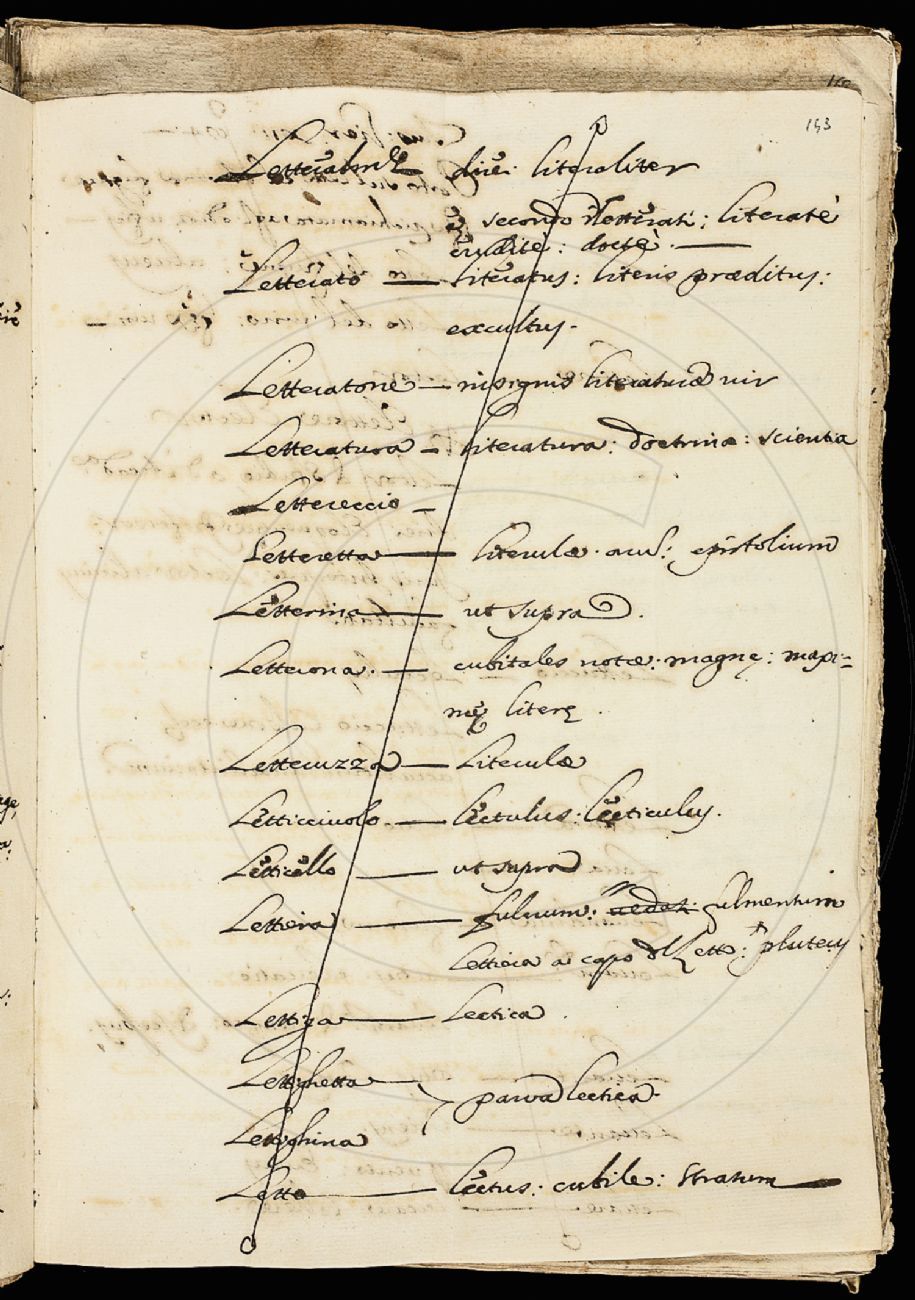 143
Letteralm.te div.e: literaliter
secondo i letterati: literatè
eruditè: doctè. —
Letterato — literatus: literis præditus:
excultus.
Letteratone — insignis literaturæ vir
Letteratura — literatura: doctrina: scientia
Lettereccio —
Letteretta — literulæ. aut: epistolium
Letterina — ut supra.
Letterona. — cubitales notæ: magnę: maxi=
mę literę.
Letteruzza — Literulæ
Letticciuolo. — lectulus: lecticulus.
Letticello — ut supra
Lettiera — fulcrum: fulmentum
lettiera a capo del letto: pluteus
Lettiga — Lectica.
Lettighetta —
parva lectica.
Lettighina
Letto — lectus: cubile: stratum —